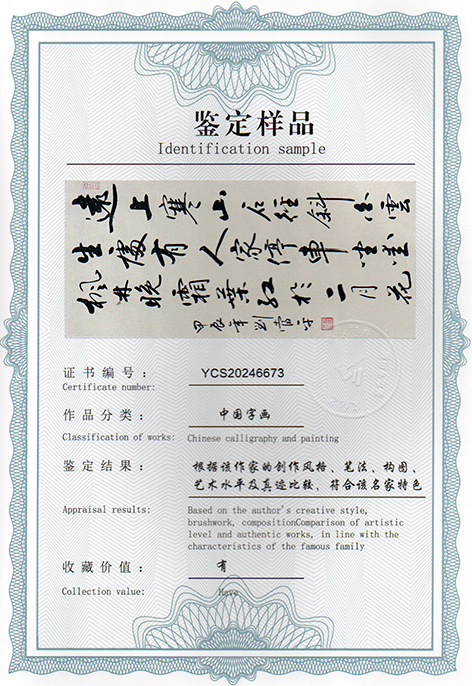 鉴定样品
Identification sample
遠上寒山石徑斜白雲
生處有人家停車坐愛
楓林晚霜葉紅於二月花
甲辰年劉
证书编号：
YCS20246673
Certificate number:
作品分类：
中国字画
Classification of works: Chinese calligraphy and painting
鉴定结果：
根据该作家的创作风格、笔法、构图、
艺术水平及真迹比较，符合该名家特色
Appraisal results:
Based on the author's creative style,
brushwork, compositionComparison of artistic
level and authentic works, in line with the
characteristics of the famous family
收藏价值：
有
Collection value: Have